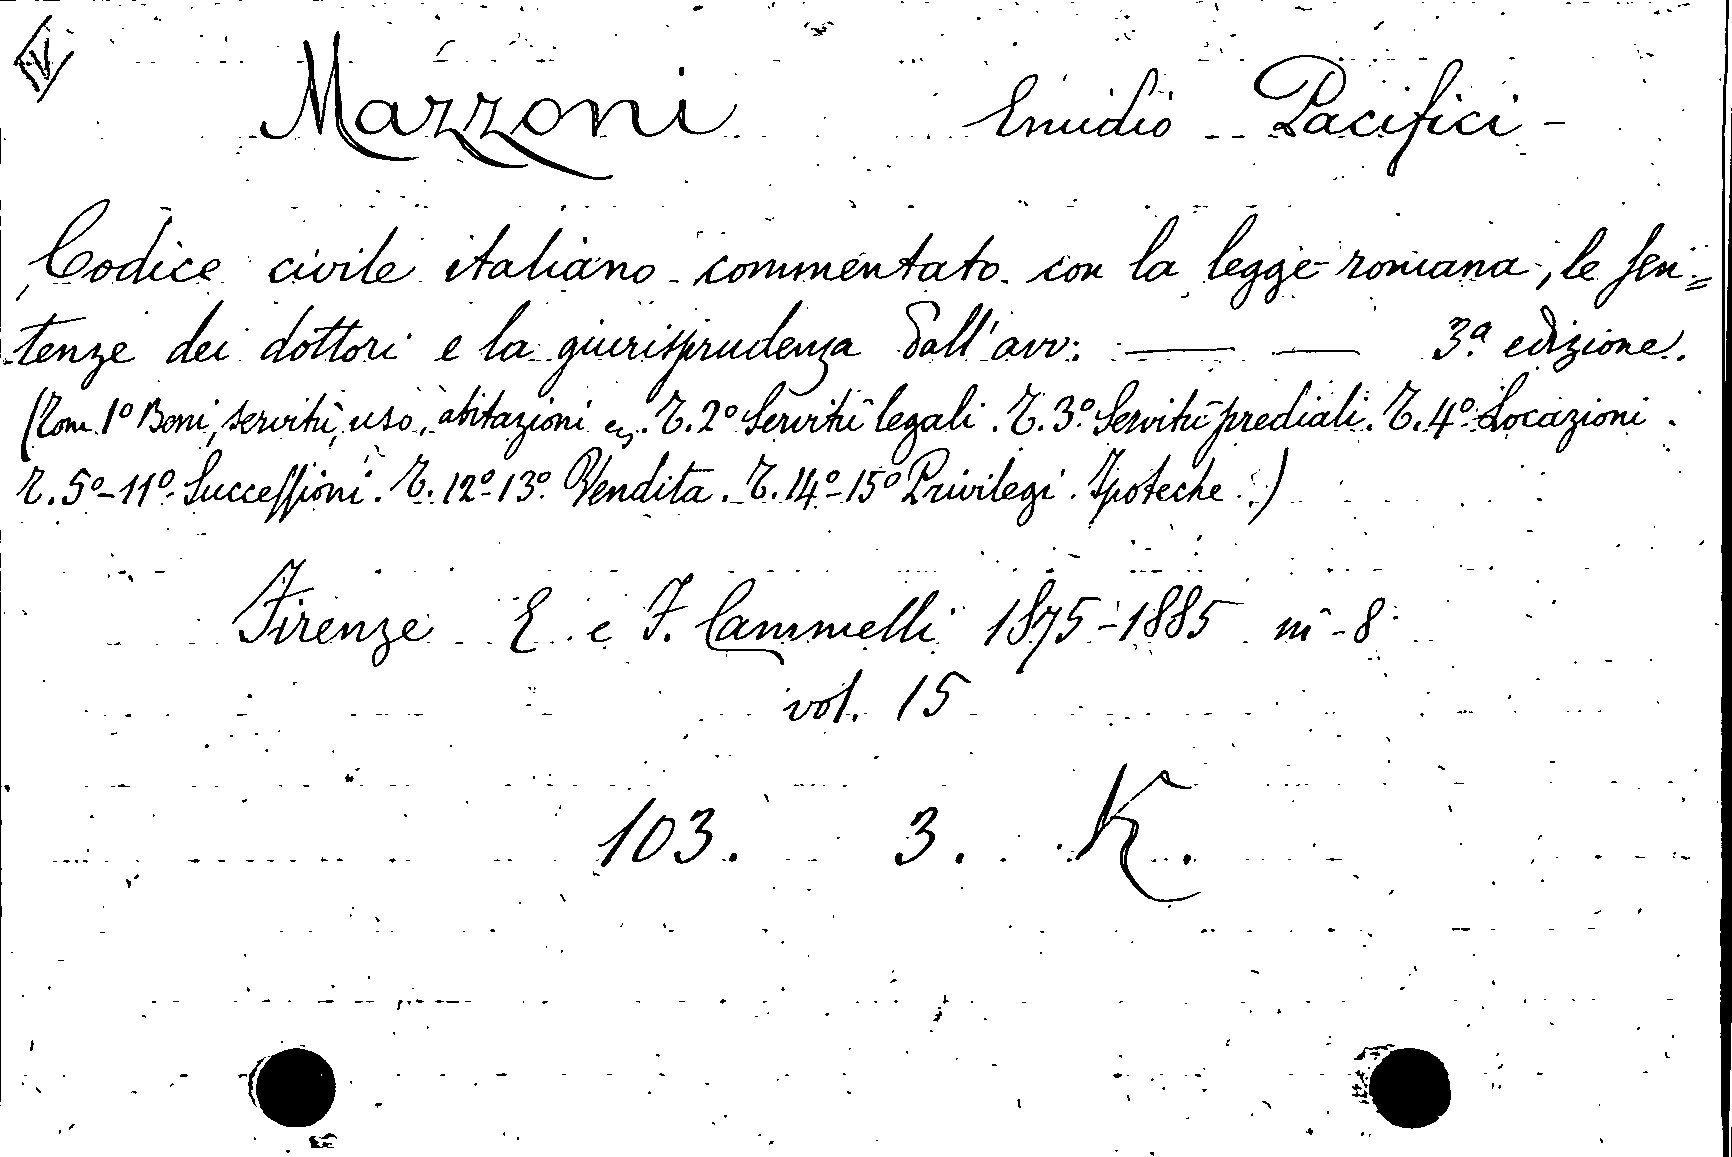 Mazzoni Emidio Pacifici -
Codice civile italiano commentato con la legge romana, le sen=
tenze dei dottori e la giurisprudenza dall'avv: —— —— 3ª edizione.
(Tom. 1º Beni, servitù, uso, abitazioni ec. T. 2º Servitù legali. T. 3º Servitù prediali. T. 4º Locazioni.
T. 5º-11º Successioni. T. 12º-13º Vendita. T. 14º-15º Privilegi. Ipoteche.)
Firenze E. e F. Cammelli 1875-1885 in-8
vol. 15
103. 3. K.